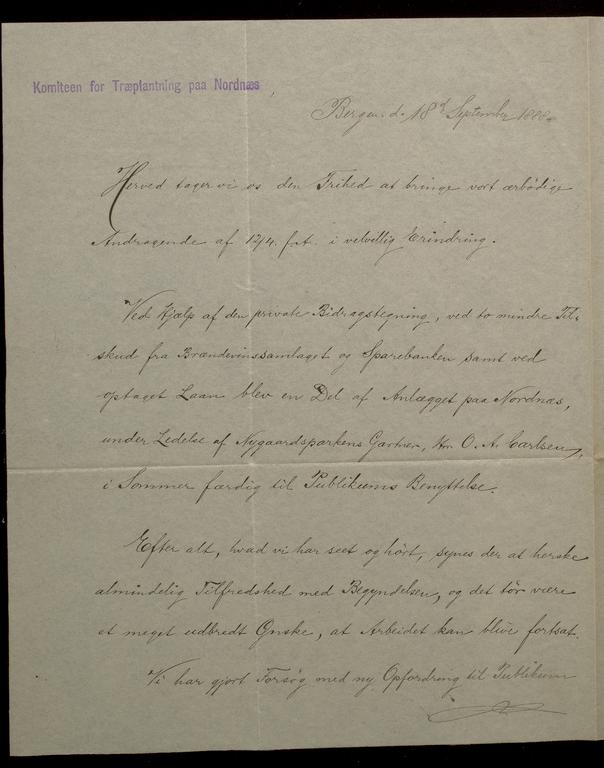 Komiteen for Træplantning paa Nordnæs
Bergen d. 18d September 1888.
Herved tager vi os den Frihed at bringe vort ærbødige
Andragende af 12/4. f. A. i velvillig Erindring.
Ved Hjælp af den private Bidragstegning, ved to mindre Til-
skud fra Brændevinssamlaget og Sparebanken samt ved
optaget Laan blev en Del af Anlægget paa Nordnæs,
under Ledelse af Nygaardsparkens Gartner, Hr. O. A. Carlsen,
i Sommer færdig til Publikums Benyttelse.
Efter alt, hvad vi har seet og hørt, synes der at herske
almindelig Tilfredshed med Begyndelsen, og det tør være
et meget udbredt Ønske, at Arbeidet kan blive fortsat.
Vi har gjort Forsøg med ny Opfordring til Publikum